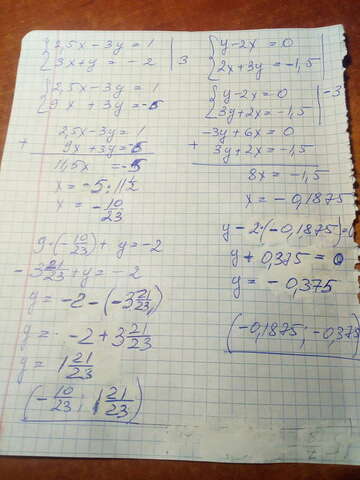 2,5x - 3y = 1
3x + y = -2 | 3
2,5x - 3y = 1
9x + 3y = -6
2,5x - 3y = 1
+
9x + 3y = -6
11,5x = -5
x = -5 : 11½
x = -10/23
9·(-10/23) + y = -2
-3 21/23 + y = -2
y = -2 - (-3 21/23)
y = -2 + 3 21/23
y = 1 21/23
(-10/23; 1 21/23)
y - 2x = 0
2x + 3y = -1,5
y - 2x = 0 | -3
3y + 2x = -1,5
-3y + 6x = 0
+
3y + 2x = -1,5
8x = -1,5
x = -0,1875
y - 2·(-0,1875) = 0
y + 0,375 = 0
y = -0,375
(-0,1875; -0,375)